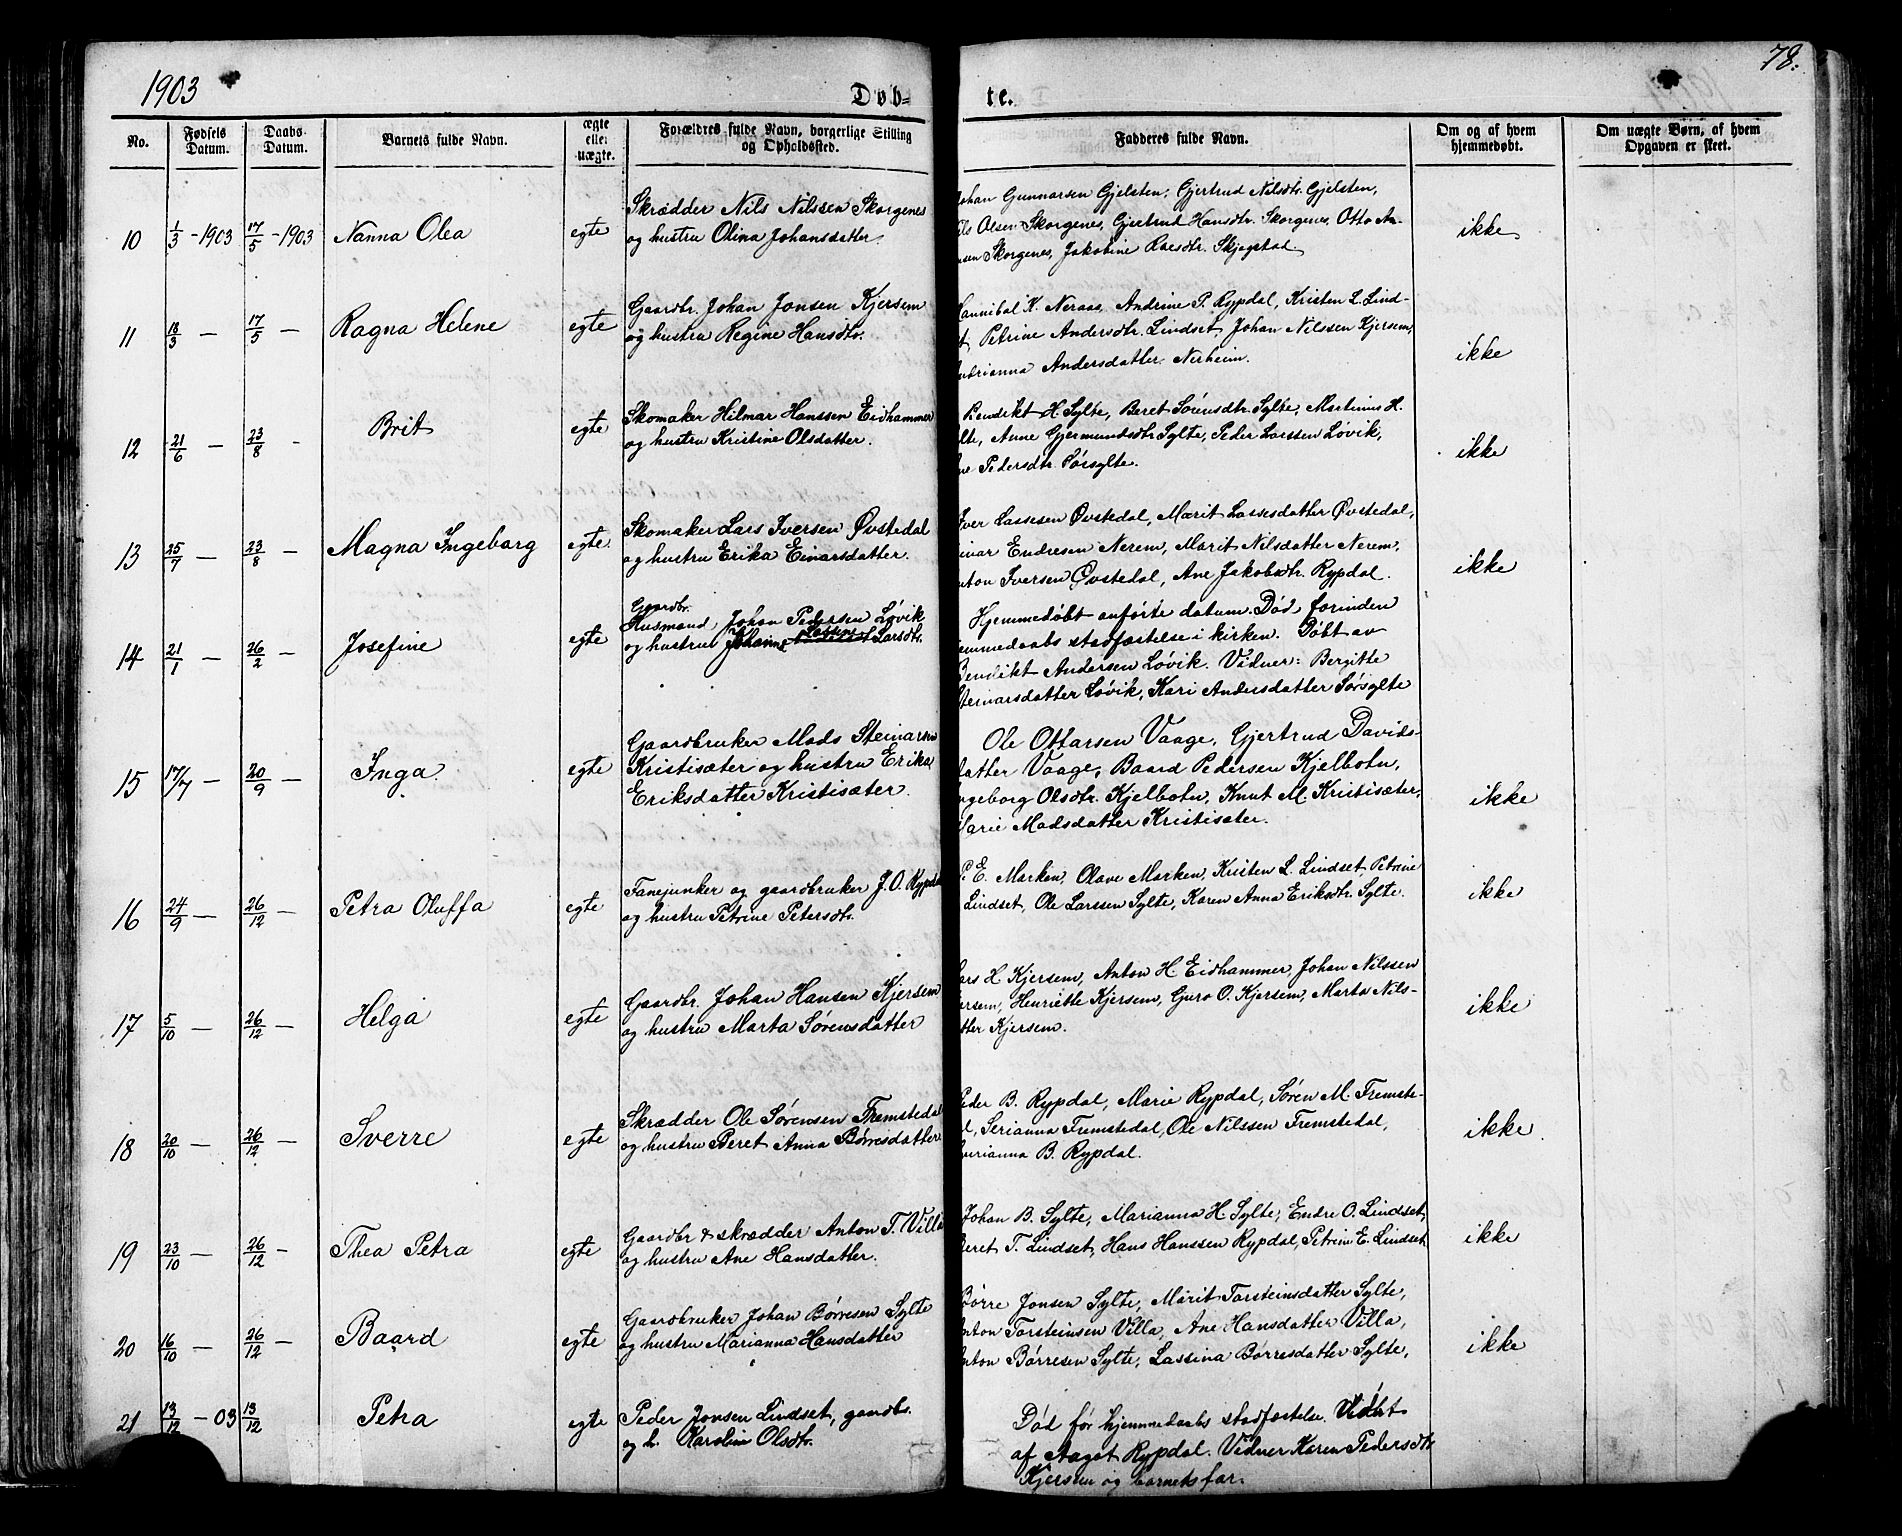 1903
Døb=
te.
78.
No.
Fødsels
Datum.
Daabs-
Datum.
Barnets fulde Navn.
ægte
eller
uægte.
Forældres fulde Navn, borgerlige Stilling
og Opholdssted.
Fadderes fulde Navn.
Om og af hvem
hjemmedøbt.
Om uægte Børn, af hvem
Opgaven er skeet.
10 1/3 - 1903 17/5 - 1903 Nanna Olea egte
Skrædder Nils Nilssen Skorgenes
og hustru Olina Johansdatter.
Johan Gunnarsen Gjelsten, Gjertrud Nilsdtr. Gjelsten,
Nils Olsen Skorgenes, Gjertrud Hansdtr. Skorgenes, Otto An-
sen Skorgenes, Jakobine Skjegstad
ikke
11 18/3 — 17/5 — Ragna Helene egte
Gaardbr. Johan Jonsen Kjersem
og hustru Regine Hansdtr.
Hannibal K. Neraas, Andrine P. Rypdal, Kristen L. Lind-
t, Petrine Andersdtr. Lindset, Johan Nilssen Kjersem,
Andersdatter Nerheim.
ikke
12 21/6 — 23/8 - Brit egte
Skomaker Hilmar Hanssen Eidhammer
og hustru Kristine Olsdatter.
Bendikt H. Sylte, Beret Sørensdtr. Sylte, Martinus H.
lte, Anne Gjermundsdtr. Sylte, Peder Larssen Løvik,
ne Pedersdtr. Sørsylte.
ikke
13 25/7 — 23/8 — Magna Ingeborg egte
Skomaker Lars Iversen Øvstedal
og hustru Erika Einarsdatter.
Iver Lassesen Øvstedal, Marit Lassesdatter Øvstedal,
inar Endresen Nerem, Marit Nilsdatter Nerem,
nton Iversen Øvstedal, Ane Jakobsdtr. Rypdal.
ikke
14 21/1 — 26/2 — Josefine egte
Gaardbr.
Husmand, Johan Pedersen Løvik
og hustru Johanna Larsdtr.
Hjemmedøbt anførte datum. Død forinden
jemmedaabs stadfæstelse i kirken. Døbt av
Bendikt Andersen Løvik. Vidner: Bergitte
Steinarsdatter Løvik, Kari Andersdatter Sørsylte
15 17/7 — 20/9 — Inga egte
Gaardbruker Mads Steinarsen
Kristisæter og hustru Erika
Eriksdatter Kristisæter.
Ole Ottarsen Vaage, Gjertrud Davids-
datter Vaage, Baard Pedersen Kjelbotn,
ngeborg Olsdtr. Kjelbotn, Knut M. Kristisæter,
Marie Madsdatter Kristisæter.
ikke
16 24/9 — 26/12 — Petra Oluffa egte
Fanejunker og gaardbruker J. O. Rypdal
og hustru Petrine Petersdtr.
P. E. Marken, Olave Marken, Kristen L. Lindset, Petrine
Lindset, Ole Larssen Sylte, Karen Anna Eriksdtr. Sylte.
ikke
17 5/10 — 26/12 — Helga egte
Gaardbr. Johan Hansen Kjersem
og hustru Marta Sørensdatter
Lars H. Kjersem, Anton H. Eidhammer, Johan Nilssen
jersem, Henriette Kjersem, Guro O. Kjersem, Marta Nils-
tter Kjersem.
ikke
18 20/10 — 26/12 — Sverre egte
Skrædder Ole Sørensen Fremstedal
og hustru Beret Anna Børresdatter
Peder B. Rypdal, Marie Rypdal, Søren M. Fremste-
l, Serianna Fremstedal, Ole Nilssen Fremstedal,
B. Rypdal.
ikke
19 23/10 — 26/12 - Thea Petra egte
Gaardbr & skrædder Anton T. Villa
og hustru Ane Hansdatter.
Johan B. Sylte, Marianna H. Sylte, Endre O. Lindset,
Beret T. Lindset, Hans Hanssen Rypdal, Petrine E. Lindset
ikke
20 16/10 — 26/12 — Baard egte
Gaardbruker Johan Børresen Sylte
og hustru Marianna Hansdatter
Børre Jonsen Sylte, Marit Torsteinsdatter Sylte,
Anton Torsteinsen Villa, Ane Hansdatter Villa,
Anton Børresen Sylte, Lassina Børresdatter Sylte,
ikke
21 13/12 - 03 13/12 Petra egte
Peder Jonsen Lindset, gaardbr.
og h. Karolin Olsdtr.
Død før hjemmedaabs stadfæstelse.
af Aagot Rypdal. Vidner Karen Pedersdtr
Kjersem og barnets far.